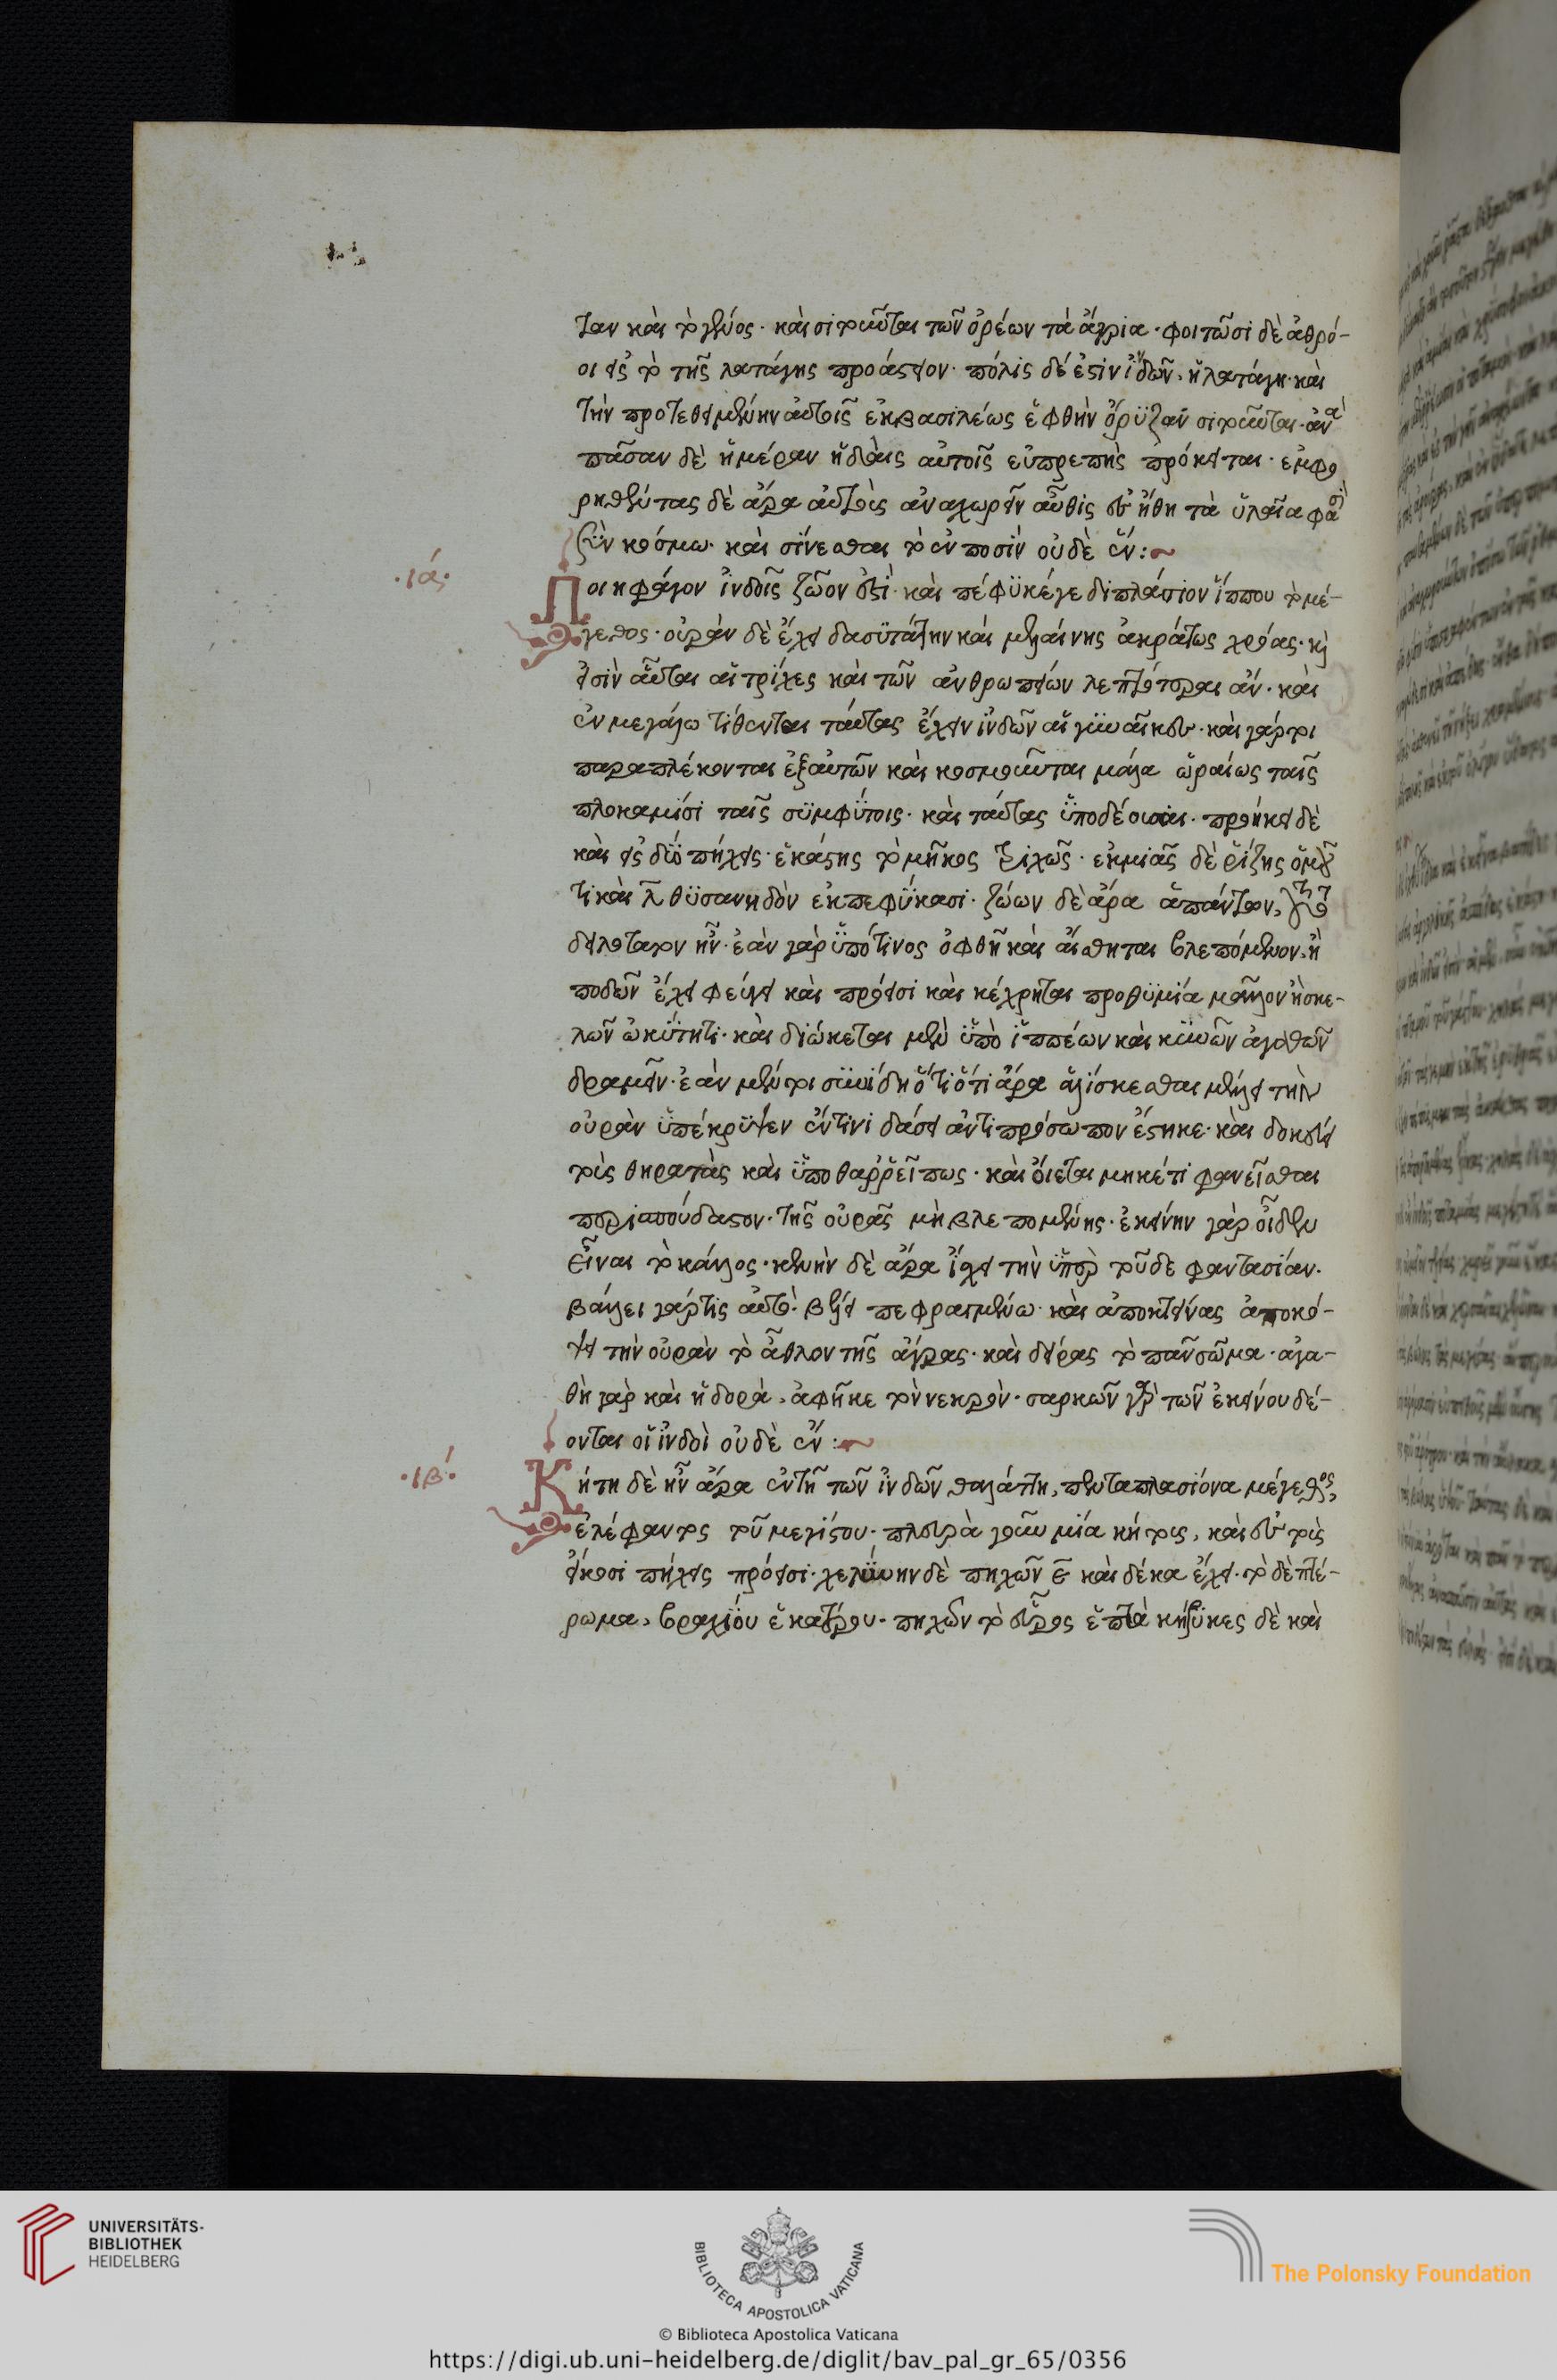 ταν καὶ τὸ γένος· καὶ σιτοῦνται τῶν ὀρέων τὰ ἄγρια· φοιτῶσι δὲ ἀθρό-
οι εἰς τὸ τῆς λατάγης προάστειον· πόλις δέ ἐστιν ἰνδῶν, ἡ λατάγη· καὶ
τὴν προτεθειμένην αὐτοῖς ἐκ βασιλέως ἑφθὴν ὄρυζαν σιτοῦνται· ἀνὰ
πᾶσαν δὲ ἡμέραν ἡ δαὶς αὐτοῖς εὐπρεπὴς πρόκειται· ἐμφο
ρηθέντας δὲ ἄρα αὐτοὺς ἀναχωρεῖν αὖθις εἰς ἤθη τὰ ὑλαῖα φασὶ
ξὺν κόσμω· καὶ σίνεσθαι τῶν ἐν ποσὶν οὐδὲ ἕν:~
·ια·
Ποιηφάγον ἰνδοῖς ζῶον ἐστὶ· καὶ πέφυκέ γε διπλάσιον ἵππου τὸ μέ-
γεθος· οὐρὰν δὲ ἔχει δασυτάτην καὶ μελαίνης ἀκράτως χρόας· καὶ
εἰσὶν αὗται αἱ τρίχες καὶ τῶν ἀνθρωπείων λεπτότεραι ἂν· καὶ
ἐν μεγάλω τίθενται ταύτας ἔχειν ἰνδῶν αἱ γυναῖκες· καὶ γάρ τοι
παραπλέκονται ἐξ αὐτῶν καὶ κοσμοῦνται μάλα ὡραίως ταῖς
πλοκαμῖσι ταῖς συμφύτοις· καὶ ταύτας ὑποδέουσαι· προήκει δὲ
καὶ εἰς δύο πήχεις· ἑκάστης τὸ μῆκος τριχῶς· ἐκ μιᾶς δὲ ῥίζης ὁμοῦ
τι καὶ λ θυσανηδὸν ἐκπεφύκασι· ζώων δὲ ἄρα ἁπάντων,
δειλότατον ἦν· ἐὰν γὰρ ὑπό τινος ὀφθῆ καὶ αἴσθηται βλεπόμενον, ἧ
ποδῶν ἔχει φεύγει καὶ πρόεισι καὶ κέχρηται προθυμία μᾶλλον ἢ σκε-
λῶν ὠκύτητι· καὶ διώκεται μὲν ὑπὸ ἱππέων καὶ κυνῶν ἀγαθῶν
δραμεῖν· ἐὰν μέντοι συνίδη ὅτι ὅτι ἄρα ἁλίσκεσθαι μέλλει τὴν
οὐρὰν ὑπέκρυψεν ἔν τινι δάσει ἀντιπρόσωπον ἕστηκε· καὶ δοκεύει
τοὺς θηρατὰς καὶ ὑποθαρρεῖ πως· καὶ οἴεται μηκέτι φανεῖσθαι
περισπούδαστον· τῆς οὐρᾶς μὴ βλεπομένης· ἐκείνην γὰρ οἶδεν
εἶναι τὸ κάλλος· κενὴν δὲ ἄρα ἴσχει τὴν ὑπὲρ τοῦδε φαντασίαν.
βάλλει γάρ τις αὐτὸ· βέλει πεφραγμένω· καὶ ἀποκτείνας ἀποκό-
ψει τὴν οὐρὰν τὸ ἆθλον τῆς ἄγρας· καὶ δείρας τὸ πᾶν σῶμα· ἀγα-
θὴ γὰρ καὶ ἡ δορὰ, ἀφῆκε τὸν νεκρὸν· σαρκῶν γὰρ τῶν ἐκείνου δέ-
ονται οἱ ἰνδοὶ οὐδὲ ἕν:~
·ιβ·
Κήτη δὲ ἦν ἄρα ἐν τῆ τῶν ἰνδῶν θαλάττη, πενταπλασίονα μέγεθος,
ἐλέφαντος τοῦ μεγίστου· πλευρὰ γοῦν μία κήτους, καὶ εἰς τοὺς
εἴκοσι πήχεις πρόεισι· χελύνην δὲ πηχῶν ε καὶ δέκα ἔχει· τὸ δὲ πτέ-
ρωμα, βραχίου ἑκατέρου· πηχῶν τὸ εὖρος ἑπτὰ κήρυκες δὲ καὶ
UNIVERSITÄTS-
BIBLIOTHEK
HEIDELBERG
BIBLIOTECA APOSTOLICA VATICANA
The Polonsky Foundation
© Biblioteca Apostolica Vaticana
https://digi.ub.uni-heidelberg.de/diglit/bav_pal_gr_65/0356